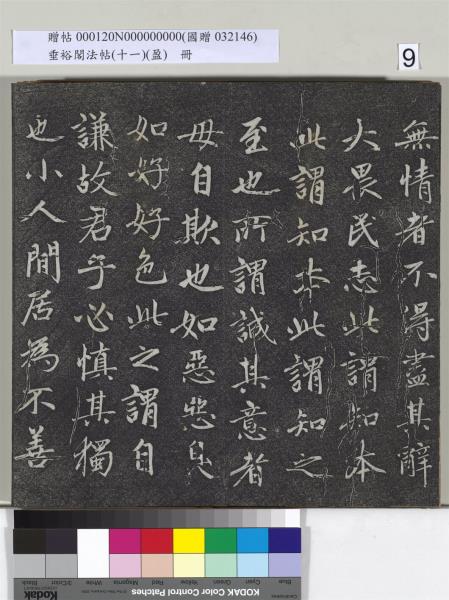 贈帖 000120N000000000(國贈 032146)
垂裕閣法帖(十一)(盈) 冊
9
無情者不得盡其辭
大畏民志此謂知本
此謂知本此謂知之
至也所謂誠其意者
毋自欺也如惡惡臭
如好好色此之謂自
謙故君子必慎其獨
也小人閒居為不善
Blue Cyan Green Yellow Red Magenta White 3/Color Black
Kodak
KODAK Color Control Patches